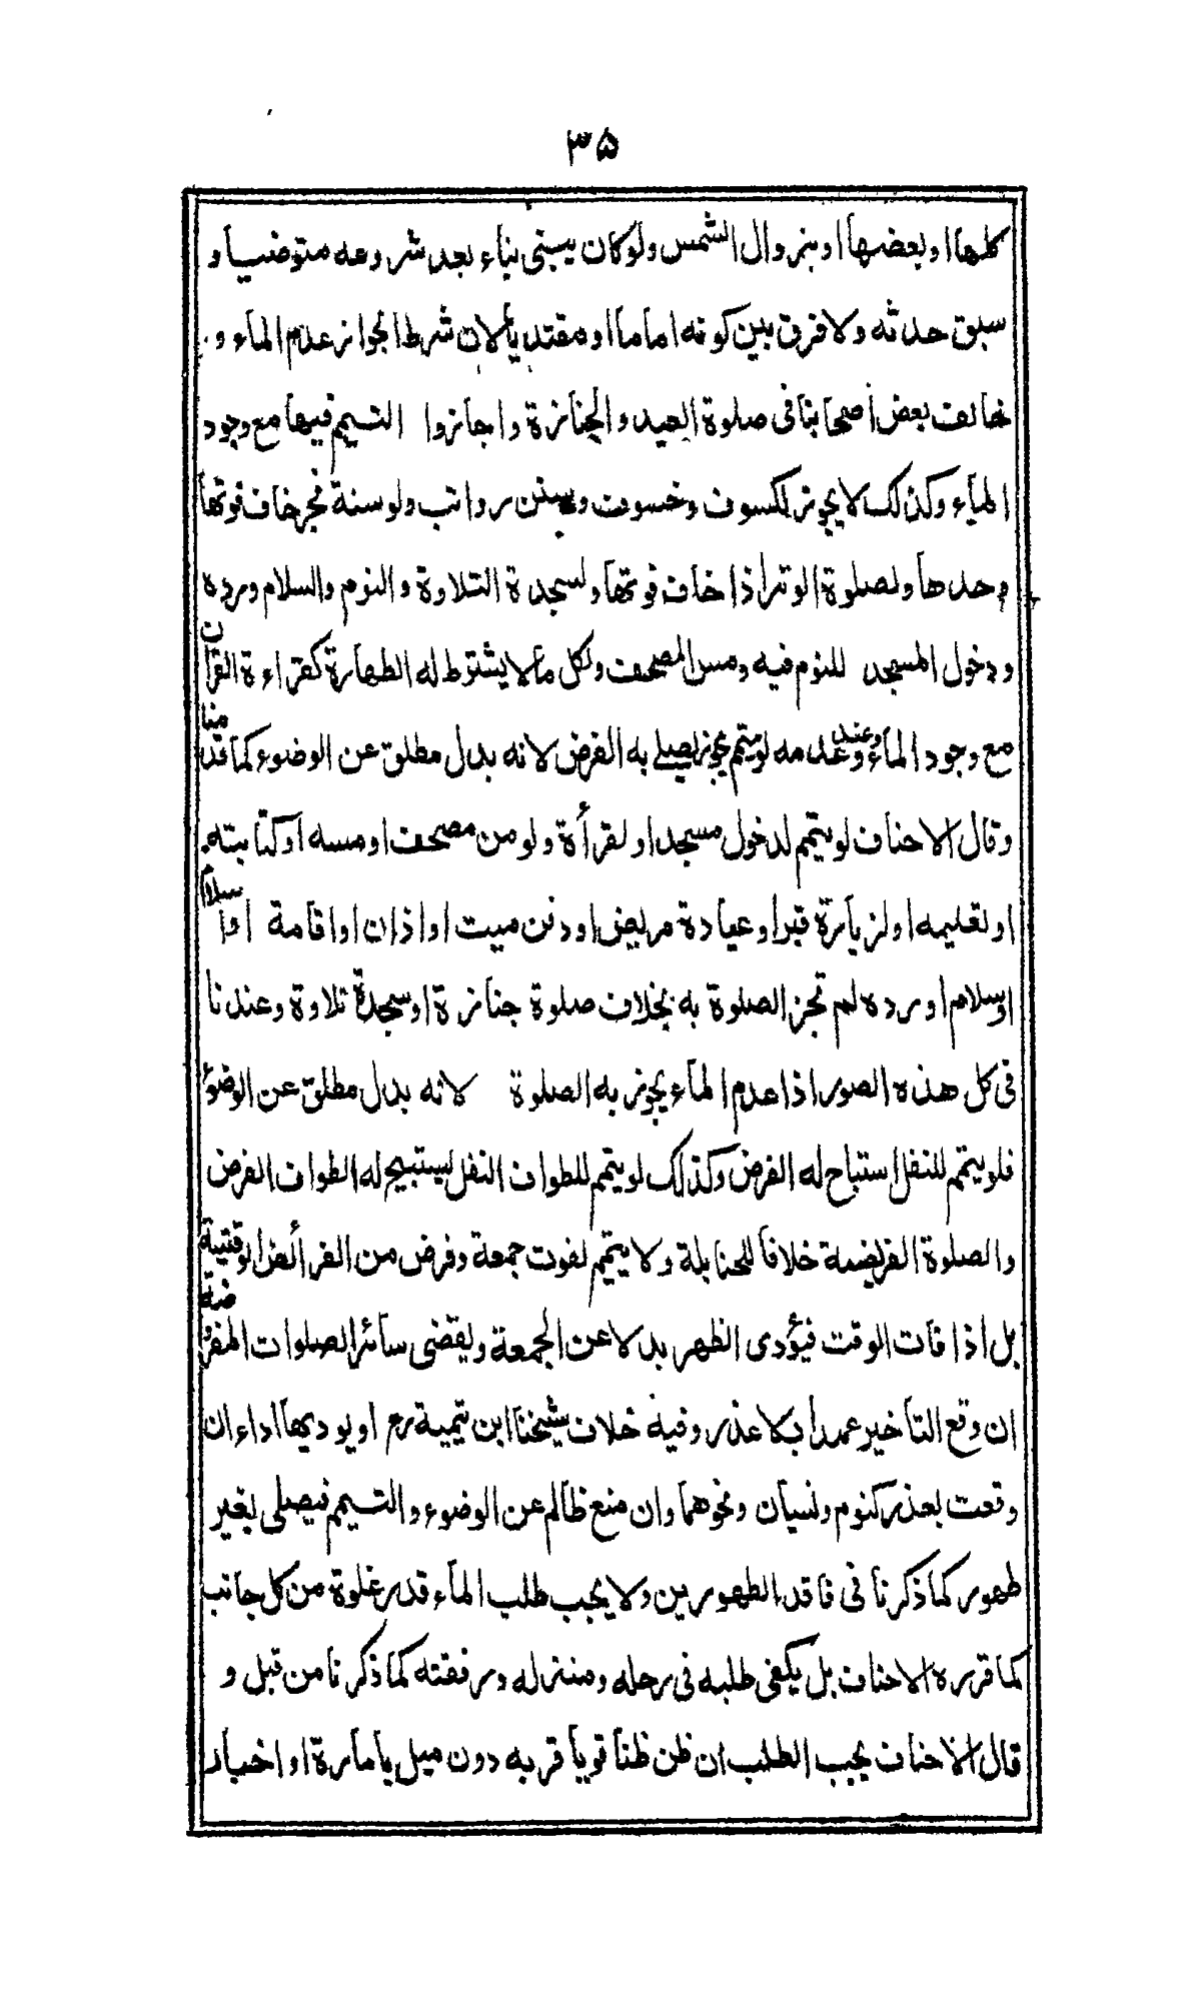 ۳۵
كلها او بعضها او بنزوال الشمس ولوكان يبنى بناء بعد شروعه متوضيا و
سبق حدثه ولا فرق بين كونه اماما او مقتديا لان شرط الجواز عدم الماء و
خالف بعض اصحابنا فى صلوة العيد والجنازة واجازوا التيمم فيها مع وجود
الماء وكذلك لا يجوز لكسوف وخسوف وسنن رواتب ولو سنة فجر خاف فوتها
وحدها ولصلوة الوتر اذا خاف فوتها ولسجدة التلاوة والنوم والسلام ورده
ودخول المسجد للنوم فيه ومس المصحف ولكل ما لا يشترط له الطهارة كقراءة القران
مع وجود الماء وعند عدمه لو يتمم يجوز ليصلے به الفرض لانه بدل مطلق عن الوضوء كما قدمنا
وقال الاحناف لو يتمم لدخول مسجد او لقرأة ولو من مصحف او مسه او كتابته
او تعليمه او لزيارة قبر او عيادة مريض او دفن ميت او اذان او اقامة او اسلام
او سلام او رده لم تجز الصلوة به بخلاف صلوة جنازة او سجدة تلاوة وعندنا
فى كل هذه الصور اذا عدم الماء يجوز به الصلوة لانه بدل مطلق عن الوضوء
فلو يتمم للنفل استباح له الفرض وكذلك لو يتمم للطواف النفل ليستبيح له الطواف الفرض
والصلوة الفريضة خلافا للحنابلة ولا يتمم لفوت جمعة وفرض من الفرائض الوقتية
بل اذا فات الوقت فيؤدى الظهر بدلا عن الجمعة ويقضى سائر الصلوات المفروضة
ان وقع التأخير عمدا بلا عذر وفيه خلاف شيخنا ابن تيمية رح او يوديها اداء ان
وقعت بعذر كنوم ونسيان ونحوهما وان منع ظالم عن الوضوء والتيمم فيصلى بغير
طهور كما ذكرنا فى فاقد الطهورين ولا يجب طلب الماء قدر غلوة من كل جانب
كما قرره الاحناف بل يكفى طلبه فى رحله ومنزله ورفقته كما ذكرنا من قبل و
قال الاحناف يجب الطلب ان ظن ظنا قويا قربه دون ميل بامارة او اخبار